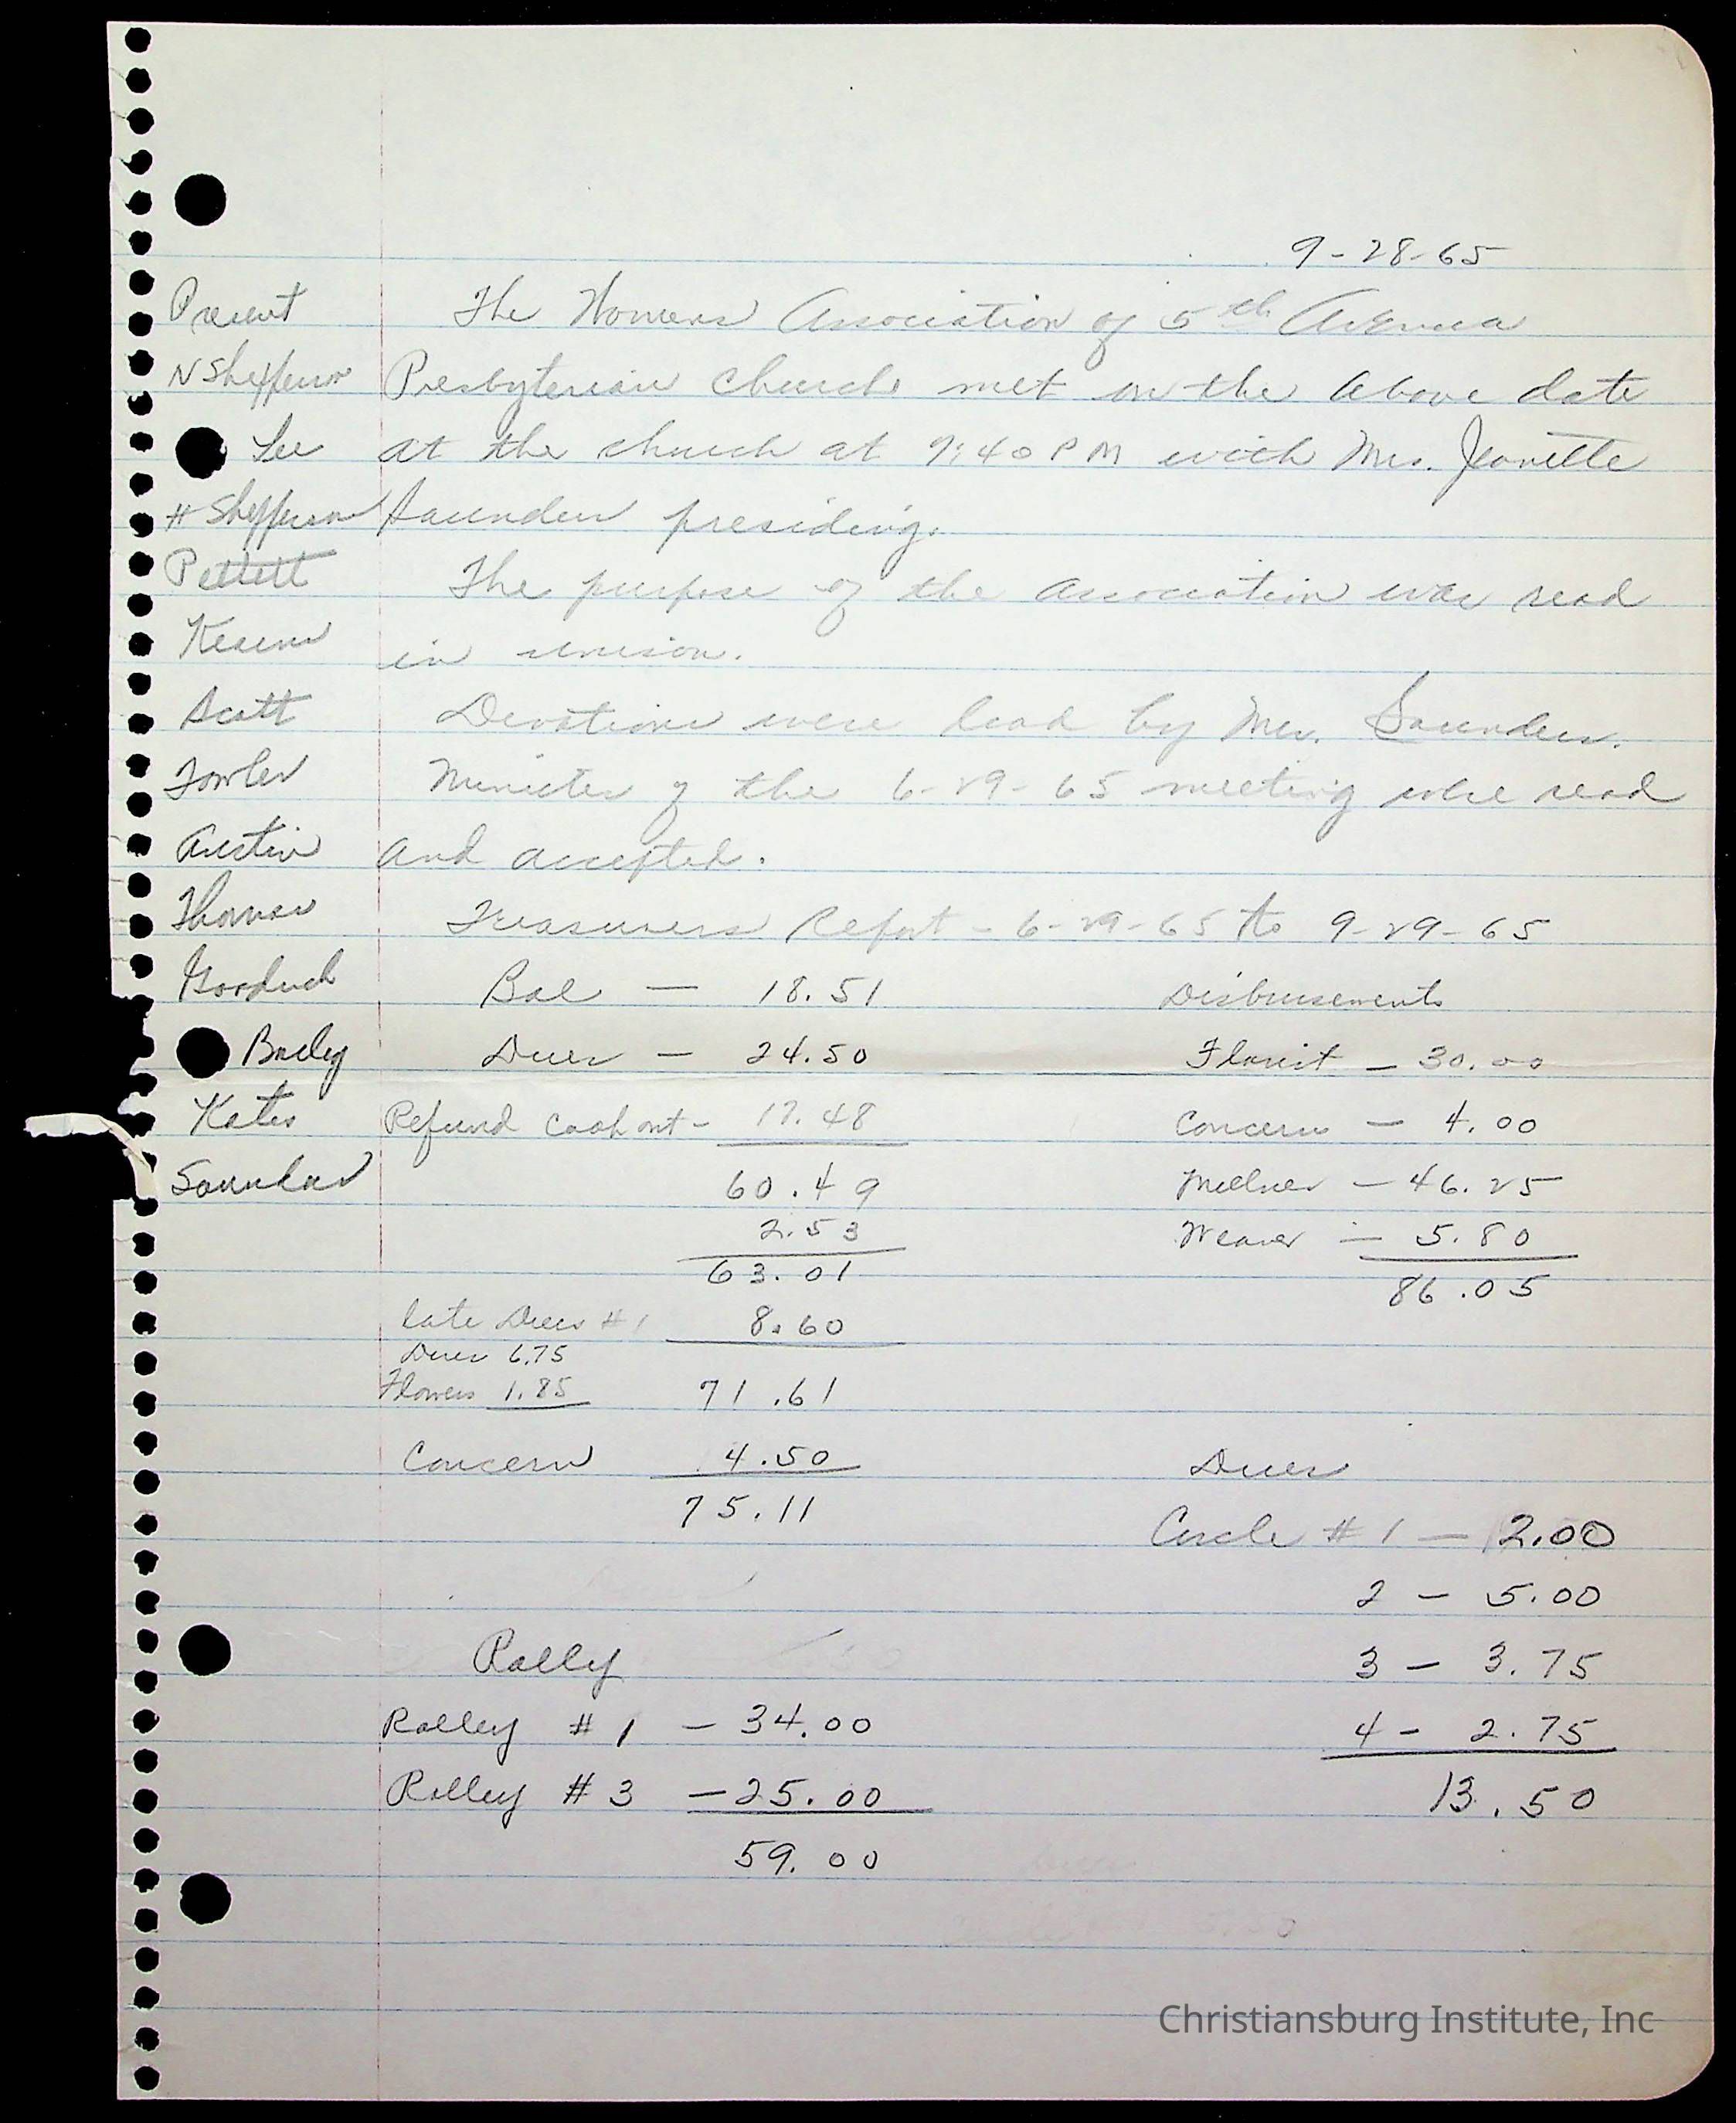 9-28-65
Present
The Womens Association of 5th Avenue
N Shefferson
Presbyterian Church met on the above date
Lee
at the church at 9:40 PM with Mrs. Jeanette
H Shefferson
Saunders presiding.
Pettett
The purpose of the association was read
in unison.
Scott
Devotions were lead by Mrs. Saunders.
Fowler
Minutes of the 6-29-65 meeting were read
Austin
and accepted.
Thomas
Treasurers Report - 6-29-65 to 9-29-65
Bal — 18.51
Disbursements
Baily
Dues — 24.50
Florist — 30.00
Kates
Refund Cookout - 17.48
Concern — 4.00
Saunders
60.49
Millner — 46.25
2.53
Weaver — 5.80
63.01
86.05
late Dues #1 8.60
Dues 6.75
Flowers 1.85
71.61
Concern 4.50
Dues
75.11
Circle #1 — 2.00
2 — 5.00
Rally
3 — 3.75
Ralley #1 — 34.00
4 - 2.75
Ralley #3 — 25.00
13.50
59.00
Christiansburg Institute, Inc